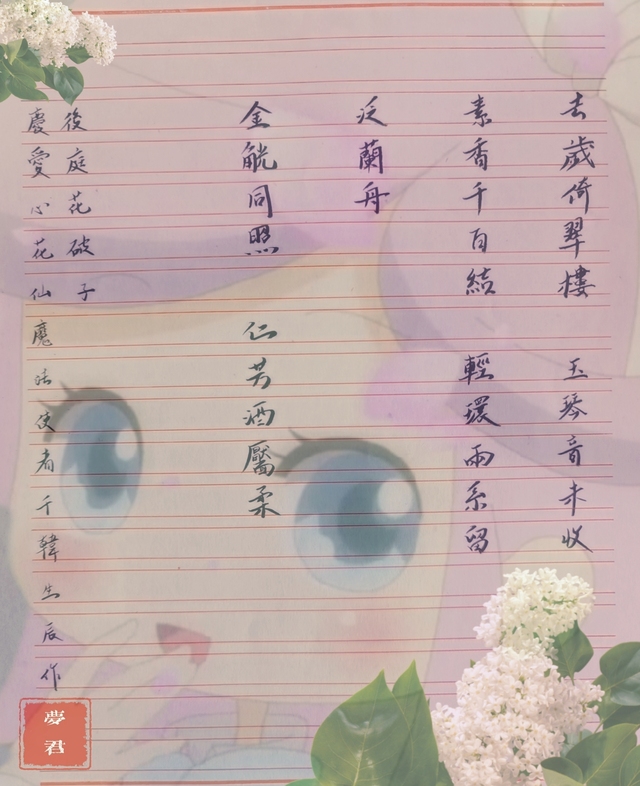 去歲倚翠樓 玉琴音未收
素香千百結 輕環兩系留
泛蘭舟
金觥同照 仁芳酒屬柔
後庭花破子
慶愛心花仙魔法使者千韓生辰作
夢君